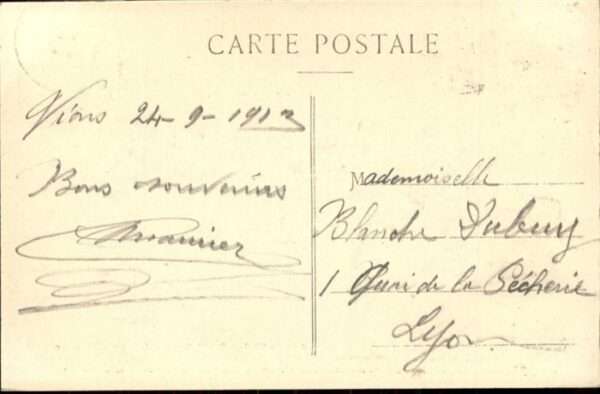 CARTE POSTALE
Vions 24-9-1912
Bons souvenirs
Mademoiselle
Blanche Dubuy
1 Quai de la Pécherie
Lyon